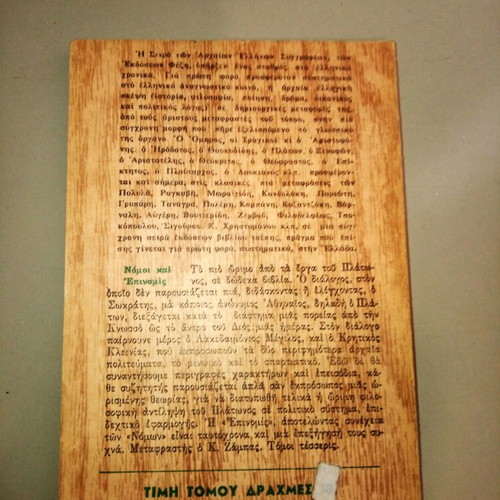 Ἡ Σειρὰ τῶν Ἀρχαίων Ἑλλήνων Συγγραφέων, τῶν
Ἐκδόσεων Φέξη, ὑπῆρξεν ἕνας σταθμὸς στὰ ἑλληνικὰ
χρονικά. Γιὰ πρώτη φορὰ προσφερόταν συστηματικὰ
στὸ ἑλληνικὸ ἀναγνωστικὸ κοινό, ἡ ἀρχαία ἑλληνικὴ
σκέψη (ἱστορία, φιλοσοφία, ποίηση, δρᾶμα, δικανικὸς
καὶ πολιτικὸς λόγος) σὲ δημιουργικὲς μεταφορές της,
ἀπὸ τοὺς ἄριστους μεταφραστὲς τοῦ τόπου, στὴν πιὸ
σύγχρονη μορφὴ ποὺ πῆρε ἐξελισσόμενο τὸ γλωσσικό
της ὄργανο. Ὁ Ὅμηρος, οἱ Τραγικοὶ κι ὁ Ἀριστοφά-
νης, ὁ Ἡρόδοτος, ὁ Θουκυδίδης, ὁ Πλάτων, ὁ Ξενοφῶν,
ὁ Ἀριστοτέλης, ὁ Θεόκριτος, ὁ Θεόφραστος, ὁ Ἐπί-
κτητος, ὁ Πλούταρχος, ὁ Λουκιανὸς κλπ. προσφέρον-
ται καὶ σήμερα, στὶς κλασικὲς πιὰ μεταφράσεις τῶν
Πολυλᾶ, Ραγκαβῆ, Μωραϊτίδη, Κονδυλάκη, Ποριώτη,
Γρυπάρη, Τανάγρα, Πολέμη, Καμπάνη, Καζαντζάκη, Βάρ-
ναλη, Αὐγέρη, Βουτιερίδη, Ζερβοῦ, Φιλαδελφέως, Τσο-
κόπουλου, Σιγούρου, Κ. Χρηστομάνου κλπ. σὲ μιὰ σύγ-
χρονη σειρὰ ἐκδόσεων βιβλίου τσέπης, πρᾶγμα ποὺ ἐπί-
σης γίνεται γιὰ πρώτη φορά, συστηματικά, στὴν Ἑλλάδα.
Νόμοι καὶ Τὸ πιὸ ὥριμο ἀπὸ τὰ ἔργα τοῦ Πλάτω-
Ἐπινομὶς νος, σὲ δώδεκα βιβλία. Ὁ διάλογος, στὸν
ὁποῖο δὲν παρουσιάζεται πιά, διδάσκοντας ἢ ἐλέγχοντας, ὁ
Σωκράτης, μὰ κάποιος ἀνώνυμος Ἀθηναῖος, δηλαδὴ ὁ Πλά-
των, διεξάγεται κατὰ τὸ διάστημα μιᾶς πορείας ἀπὸ τὴν
Κνωσσὸ ὡς τὸ ἄντρο τοῦ Διός, μιᾶς ἡμέρας. Στὸν διάλογο
παίρνουνε μέρος ὁ Λακεδαιμόνιος Μέγιλος, καὶ ὁ Κρητικὸς
Κλεινίας, ποὺ ἐκπροσωποῦν τὰ δύο περιφημότερα ἀρχαῖα
πολιτεύματα, τὸ μινωικὸ καὶ τὸ σπαρτιατικό. Ἐδῶ δὲ θὰ
συναντήσουμε περιγραφὲς χαρακτήρων καὶ ἐπεισόδια, κά-
θε συζητητὴς παρουσιάζεται ἁπλὰ σὰν ἐκπρόσωπος μιᾶς ὡ-
ρισμένης θεωρίας, γιὰ νὰ διατυπωθῆ τελικὰ ἡ ὥριμη φιλο-
σοφικὴ ἀντίληψη τοῦ Πλάτωνος σὲ πολιτικὸ σύστημα, ἐπι-
δεχτικὸ ἐφαρμογῆς. Ἡ «Ἐπινομίς», ἀποτελώντας συνέχεια
τῶν «Νόμων» εἶναι ταυτόχρονα καὶ μιὰ ἐπεξήγησή τους συ-
χνά. Μεταφραστὴς ὁ Κ. Ζάμπας. Τόμοι τέσσερις.
ΤΙΜΗ ΤΟΜΟΥ ΔΡΑΧΜΕΣ